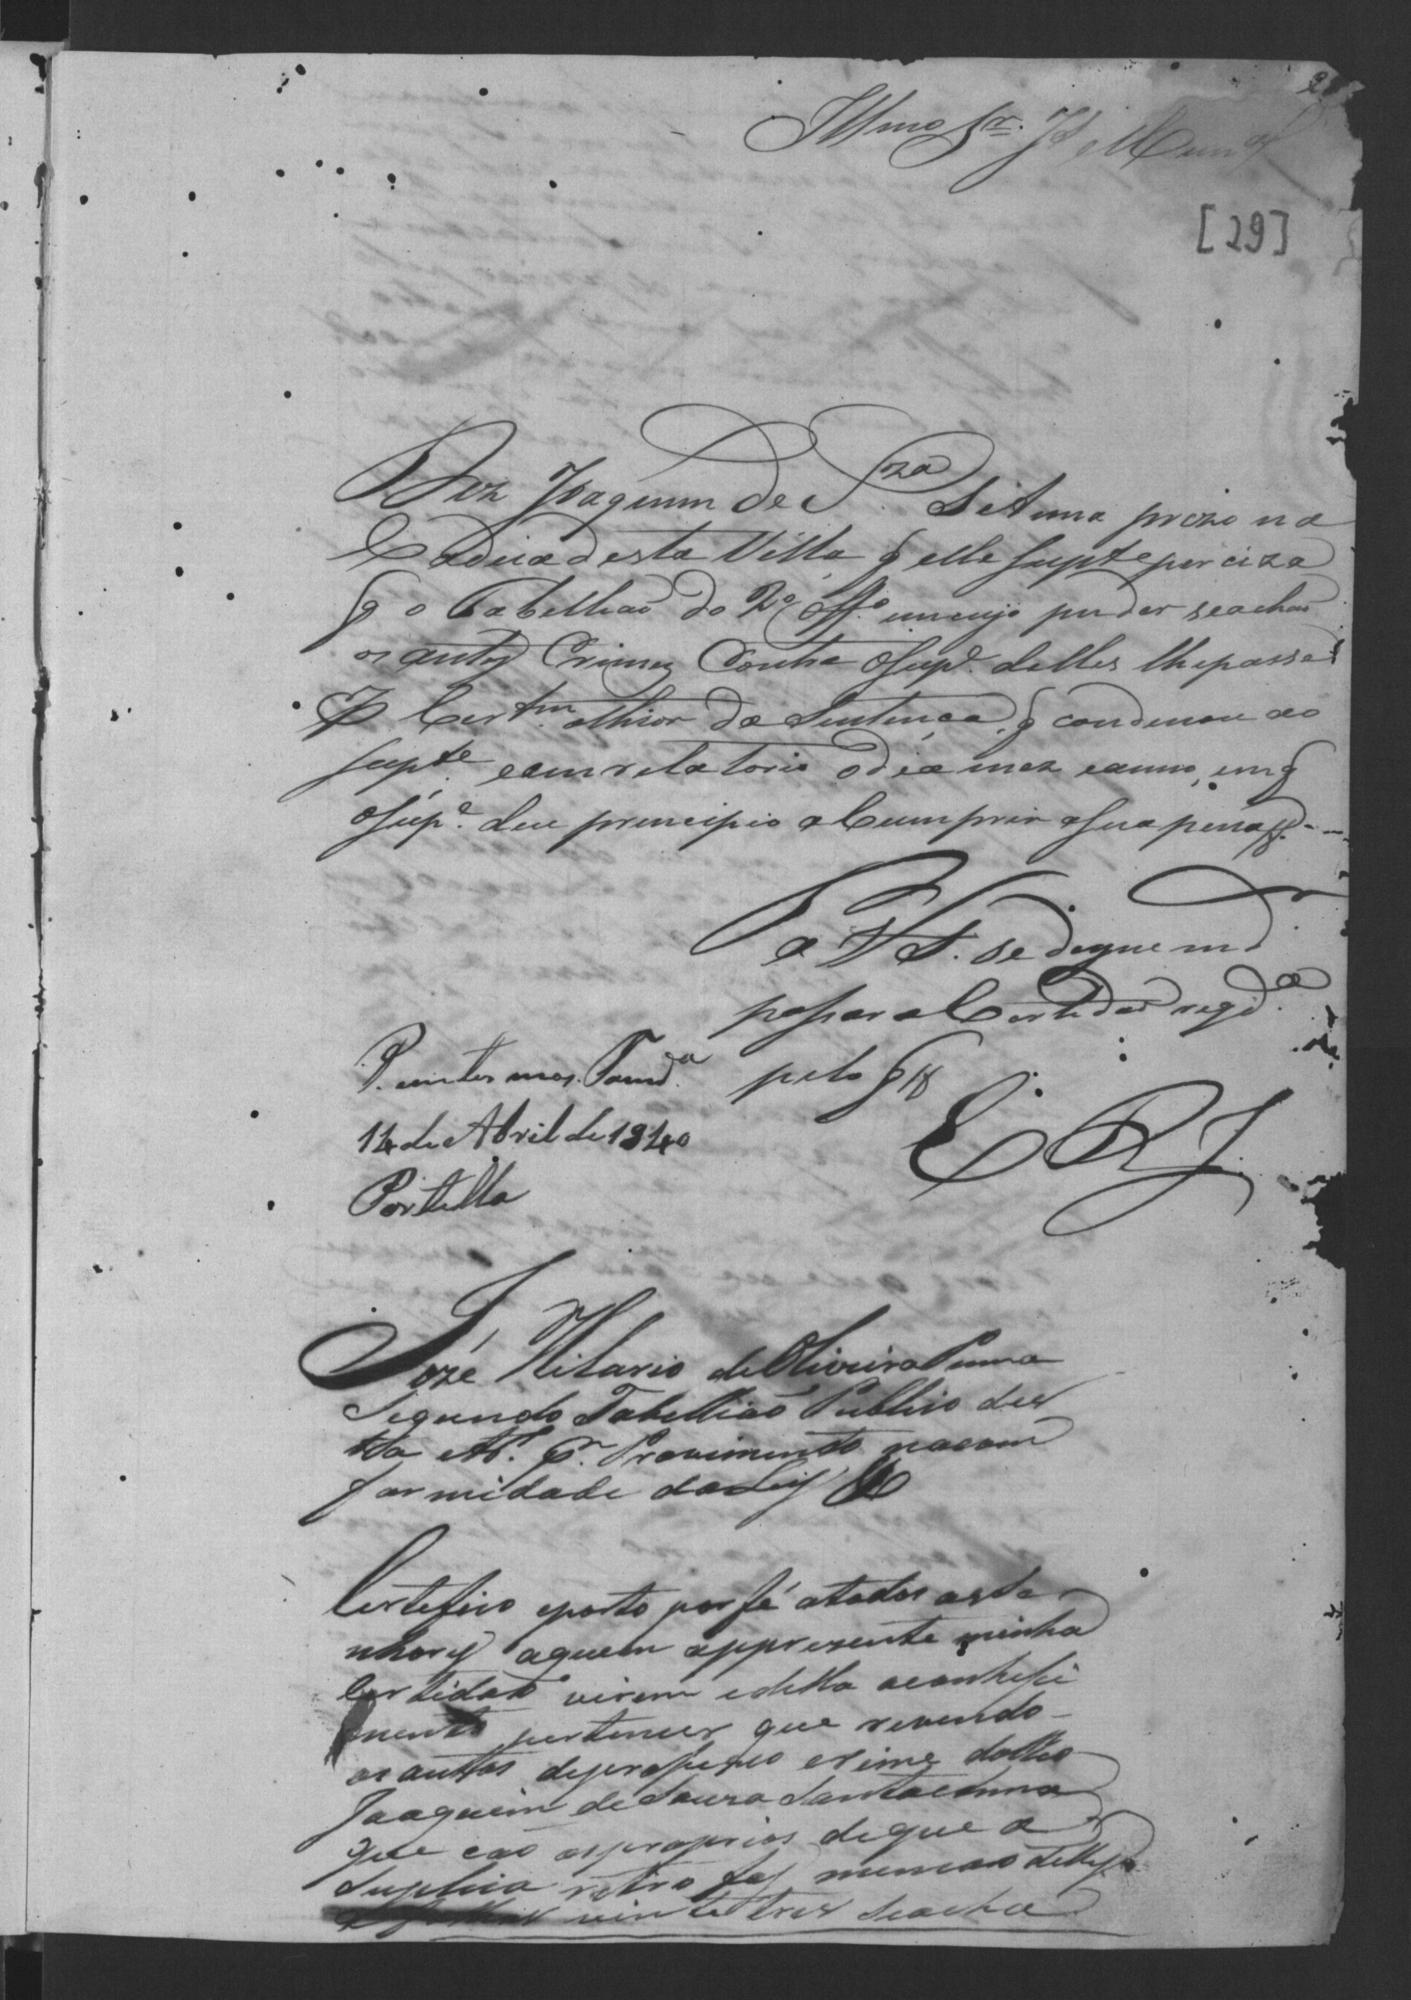 Illmo Snr. J. Mun.al
[29]
Diz Joaquim de Sza S.ta Anna prezo na
Cadeia desta Villa q elle Supte perciza
q o Tabelliaõ do 2º Offº em cujo puder se achaõ
os autos Crimes Contra o Supe. delles lhe passe
P Certam o theor da Sentença, q condenou ao
Supte e em relatorio o dia mez e anno, em q
o Supe. deu principio a Cumprir a Sua pena
P
a V S. se digne md.
passar a Certidaõ reqd.a
pelo q
E R J
P. em termos. Pomd.a
14 de Abril de 1840
Portella
Jozé Hilario de Oliveira Penna
Segundo Tabelliaõ Publico des
ta Provimento na con
formidade da Ley &
Certefico e porto por fé a todos os Se
nhores a quem a pprezente minha
Certidaõ virem e della o conhesci
mento pertencer que revendo
os autos de prosseço crime do Reo
Joaquim de Souza Santa Anna
que saõ os proprios de que a
Suplica retro faz mencaõ delles
a folhas vinte tres Se acha